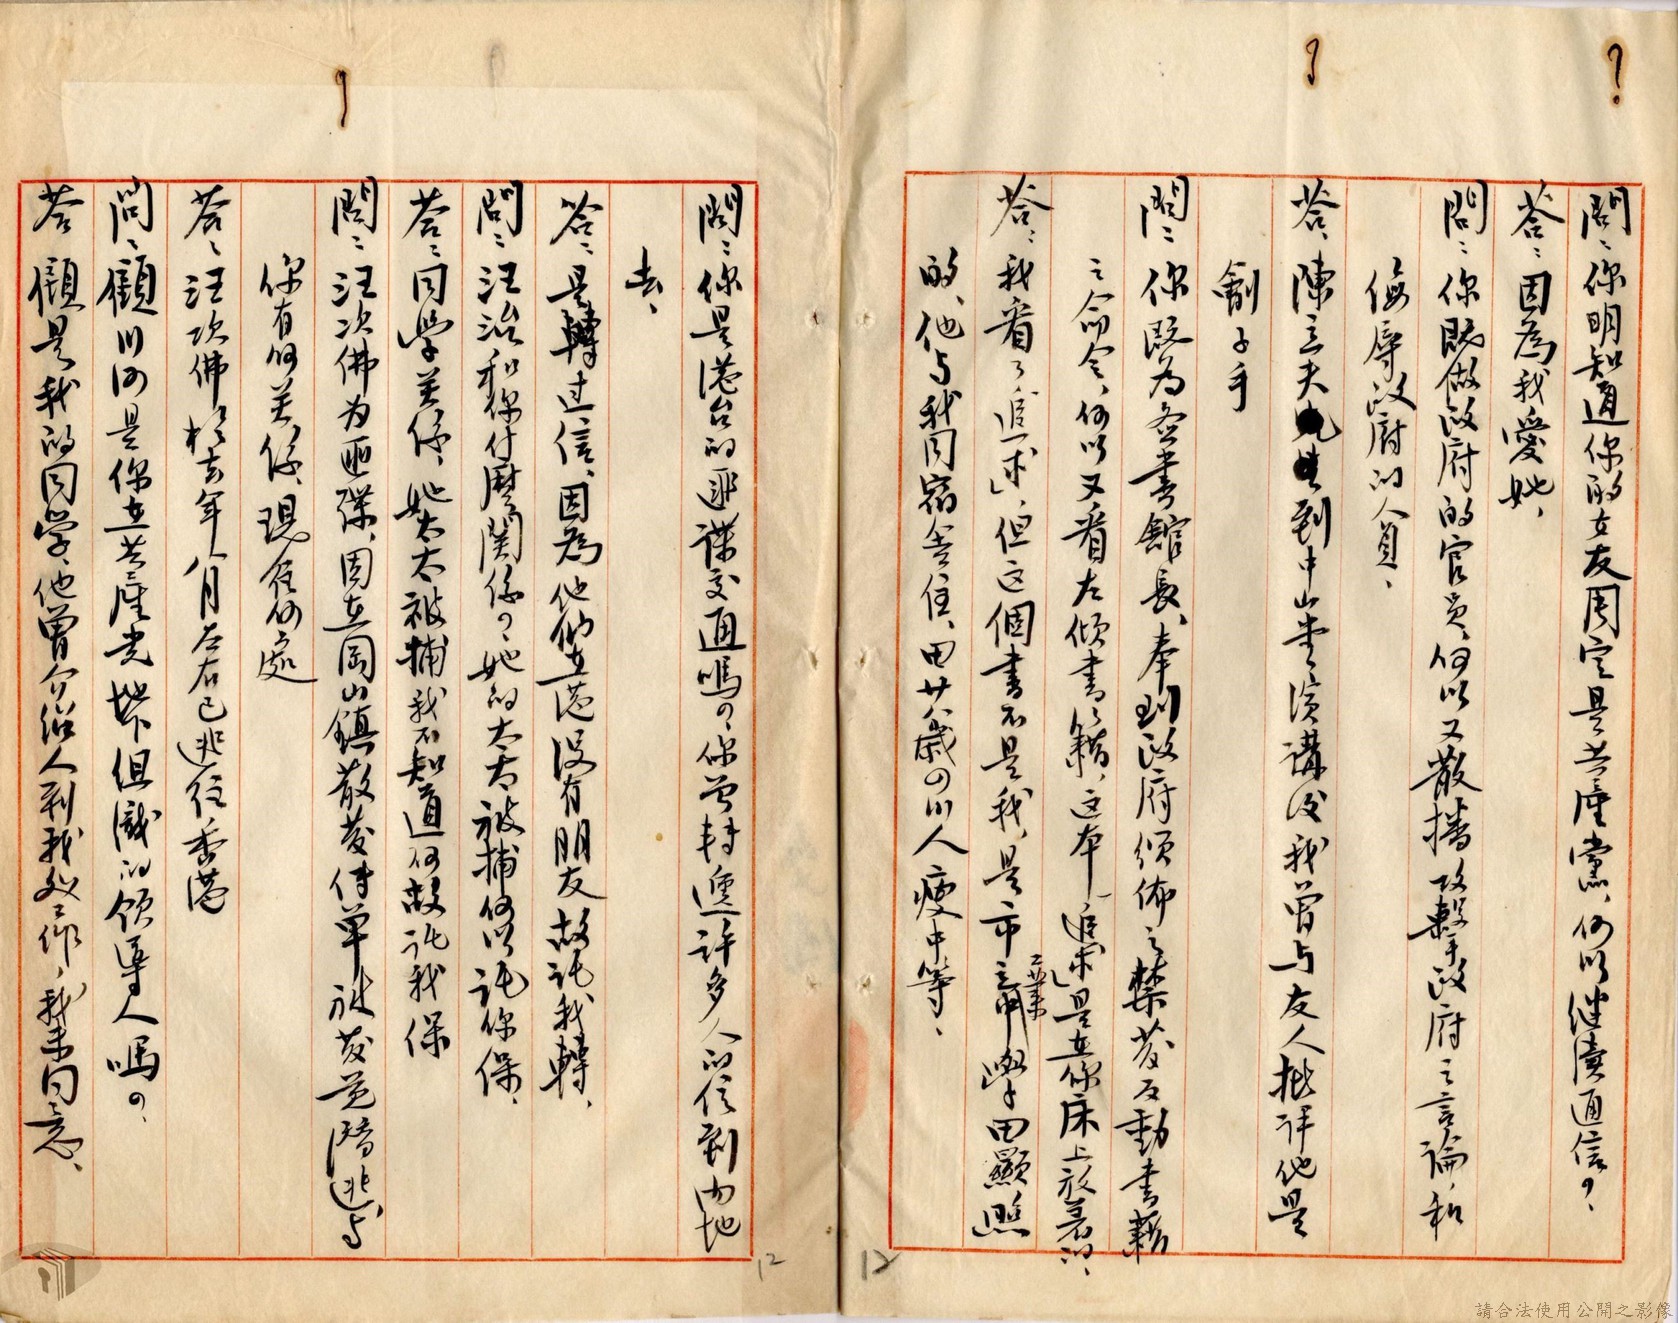 問：你明知道你的女友周定是共產黨、何以继續通信？
答：因為我愛她、
問：你既做政府的官员、何以又散播攻擊政府之言論、和
侮辱政府的人員、
答：陳立夫到中山堂演講后我曾与友人批評他是
劊子手
問：你既为圖書館長、奉到政府頒佈之禁发反動书籍
之命令、何以又看左倾書籍、这本「追求」是在你床上放着的、
答：我看了「追求」、但这個書不是我、是市立工業中學田顯照
的、他与我同宿舍住、田廿八歲四川人瘦中等、
問：你是港台的匪諜交通嗎？你曾轉遞許多人的信到内地
去、
答：是轉过信、因為他们在港没有朋友故託我轉、
問：汪治和你什麼関係？她的太太被捕何以託你保、
答：同學关係、她太太被捕我不知道何故託我保
問：汪次佛为匪諜、因在岡山鎮散发传单被发觉潛逃、与
你有何关係、現在何處
答：汪次佛於去年八月左右已逃往香港
問：顧川河是你在共產党地下组織的領導人嗎？
答 顧是我的同学、他曾介绍人到我处工作、我未同意、
12
12
請合法使用公開之影像